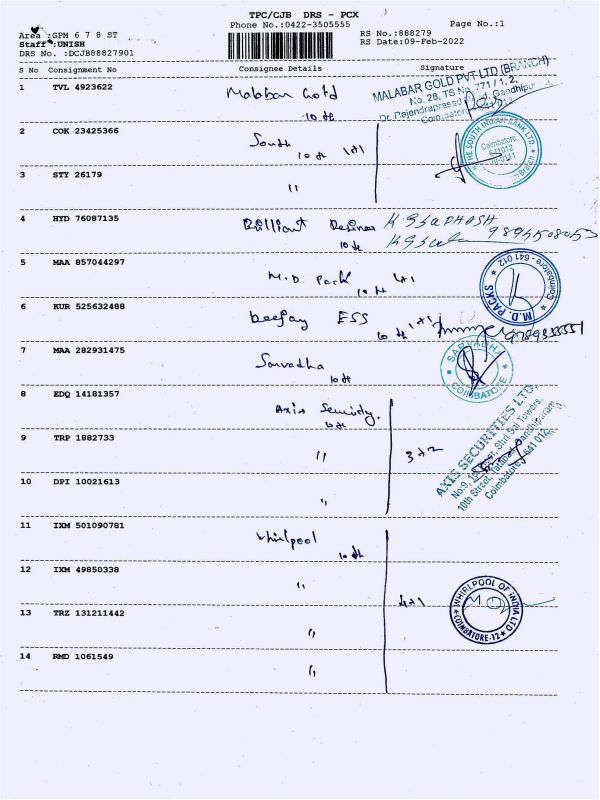 TPC/CJB DRS - PCX
Phone No.:0422-3505555 Page No.:1
Area :GPM 6 7 8 ST RS No.:888279
Staff :UNISH RS Date:09-Feb-2022
DRS No. :DCJB88827901
S No Consignment No Consignee Details Signature
1 TVL 4923622 Malabar Gold
10 th
MALABAR GOLD PVT LTD (BRANCH)
No. 28, TS No. 771 / 1, 2,
Dr. Rajendraprasad Gandhipur
Coimbatore 641012
2 COK 23425366 South
10 th 1+1
THE SOUTH INDIAN BANK LTD.
Coimbatore
641012
Branch
3 STY 26179 "
4 HYD 76087135 Brilliant
10 th
5 MAA 857044297 M.D Park
10 th 1+1
M.D. PACKS Coimbatore - 641 012
6 KUR 525632488 Deejay ESS
10 th 1+1
7 MAA 282931475 Sarvadha
10 th
SARVADHA
COIMBATORE
8 EDQ 14181357 Axis Security.
10 th
9 TRP 1882733 "
3+2
AXIS SECURITIES LTD.
Shri Sai Towers,
10th Street, Tatabad, Gandhipuram,
Coimbatore 641 012
10 DPI 10021613 "
11 IXM 501090781 Whirlpool
10 th
12 IXM 49850338 "
4+1
WHIRLPOOL OF INDIA LTD
COIMBATORE-12
13 TRZ 131211442 "
14 RMD 1061549 "